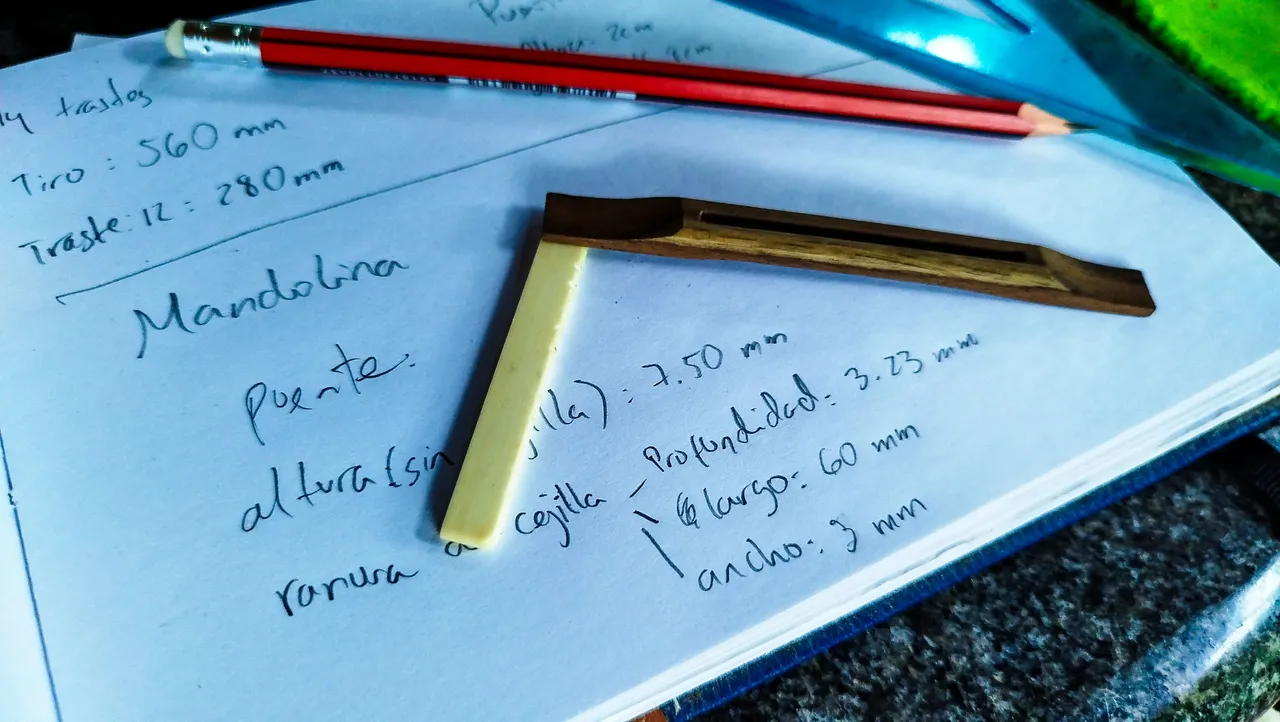 2cm
trastes
Tiro: 560 mm
Traste: 12: 280 mm
Mandolina
Puente:
altura (sin jilla): 7.50 mm
ranura cejilla - Profundidad: 3.23 mm
largo: 60 mm
ancho: 3 mm